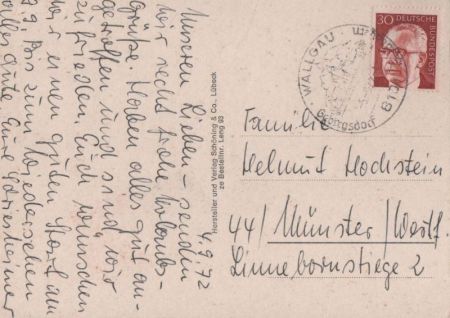 4.9.72
Unseren Lieben senden
wir recht frohe Urlaubs-
Grüße. Haben alles gut an-
getroffen und sind wir
zufrieden. Euch wünschen
wir einen guten Start am
7.9. Bis zum Wiedersehen
alles Gute Eure
Hersteller und Verlag Schöning & Co., Lübeck
zo Bestellnr. Leng 93
WALLGAU
810
Gebirgsdorf
30
DEUTSCHE
BUNDESPOST
Familie
Helmut Hochstein
44/Münster/Westf.
Linnebornstiege 2